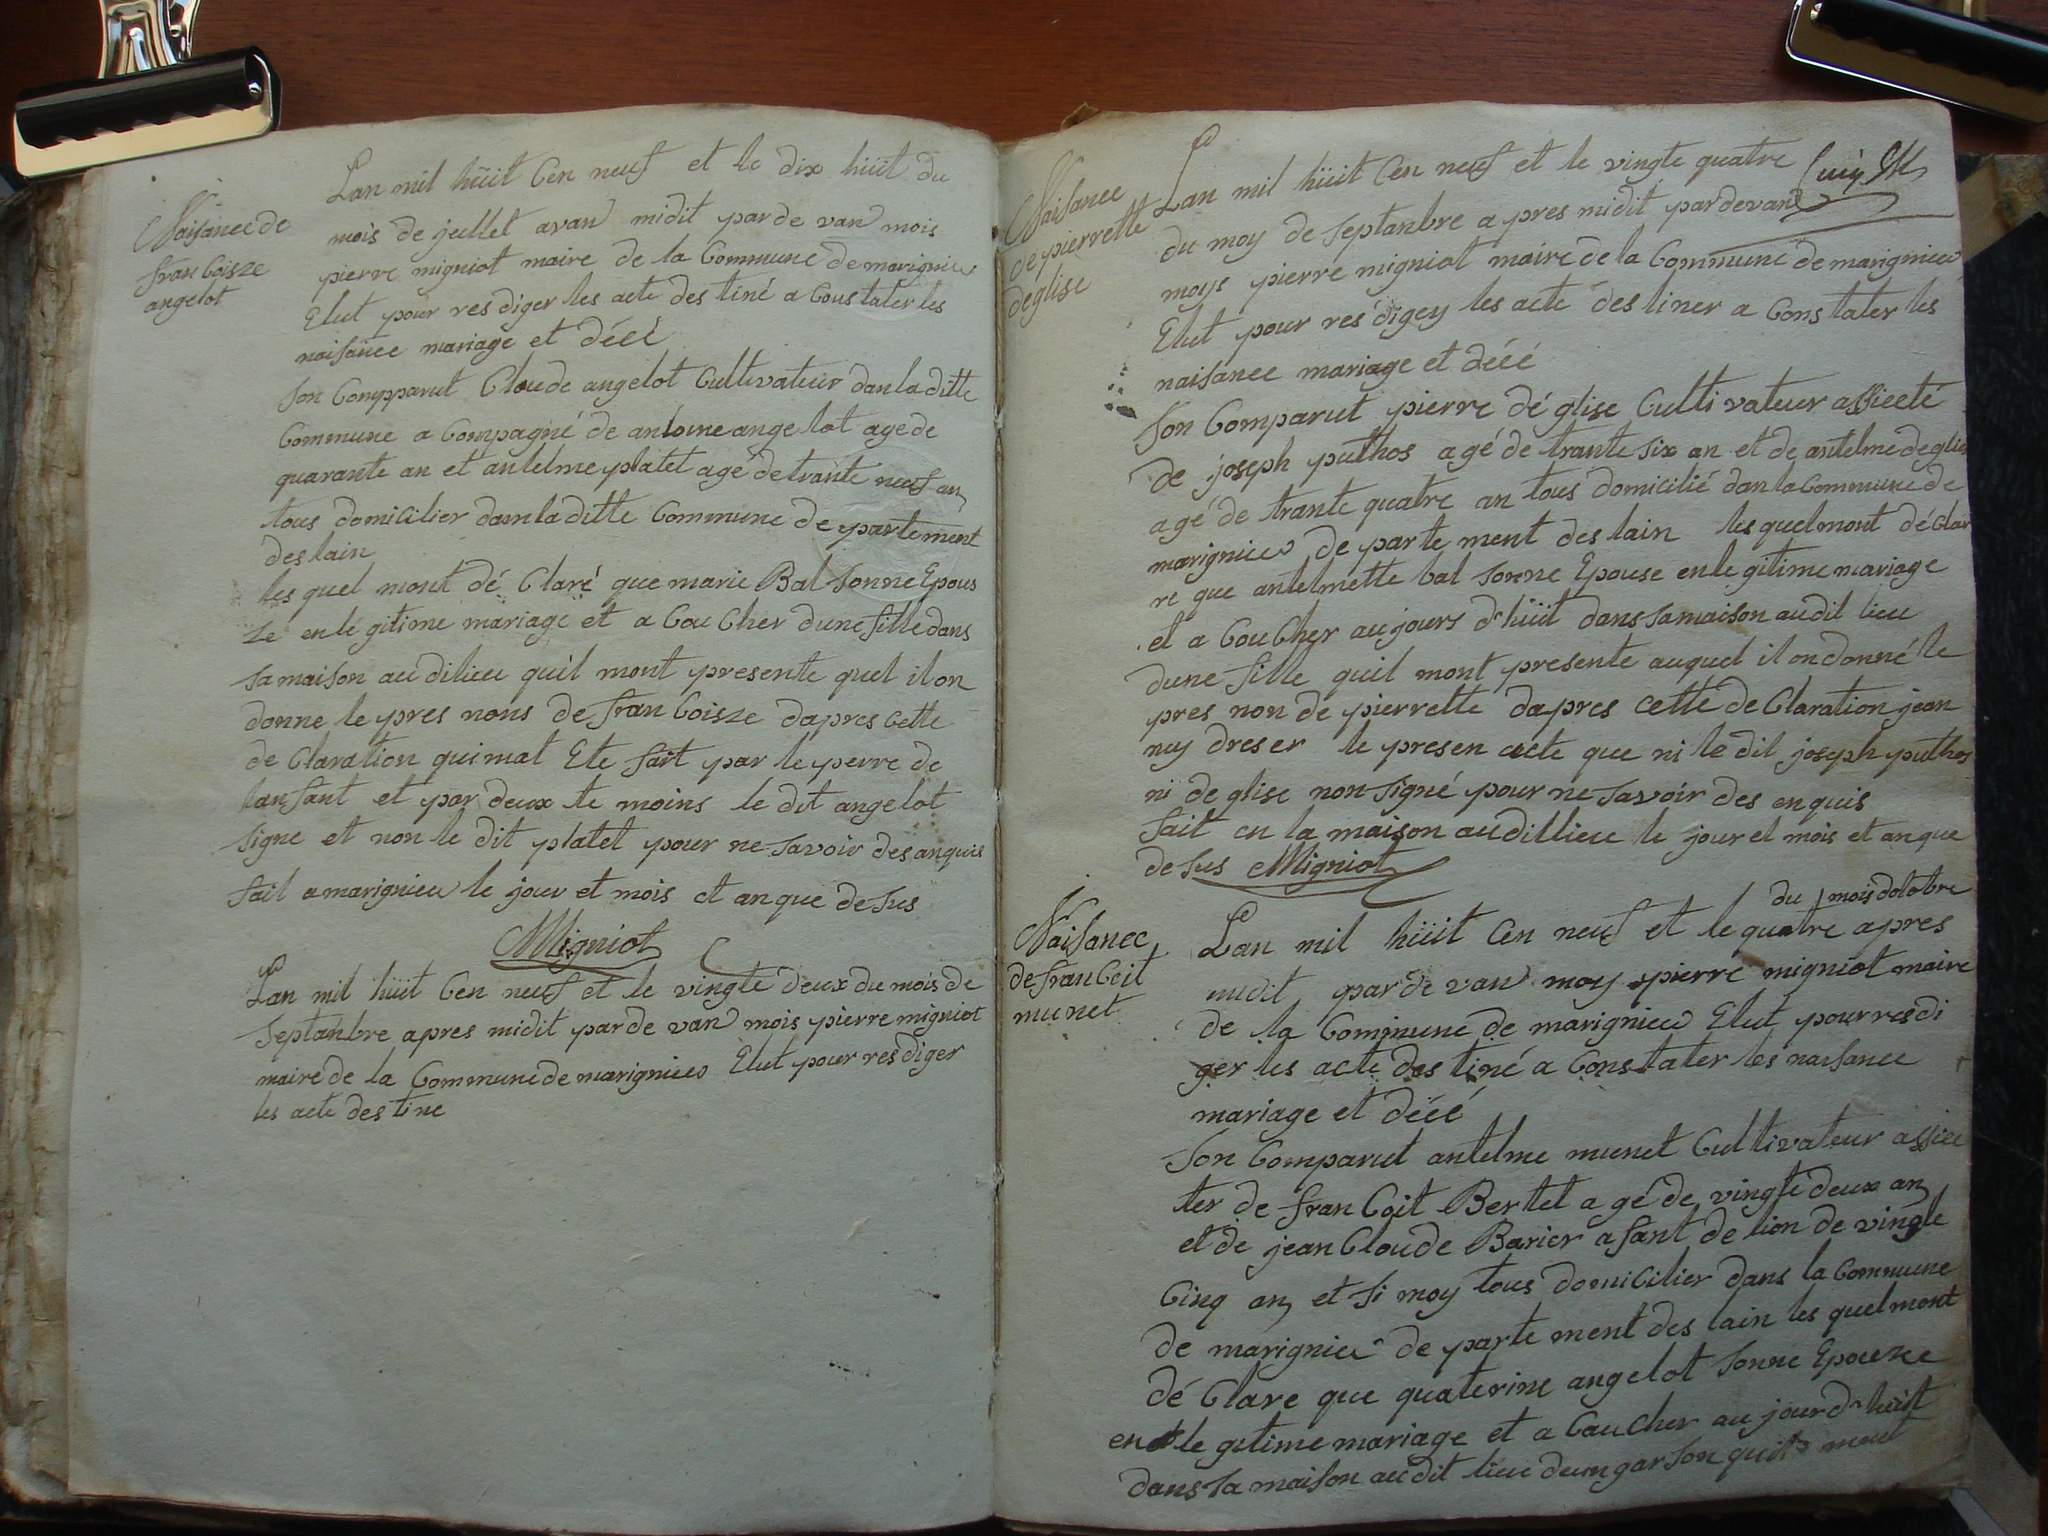 Naisanec de
franCoisze
angelot
Lan mil hüit Cen neuf et le dix hüit du
mois de jeullet avan midit par de van mois
pierre migniot maire de la Commune de marignieu
Elut pour res diger les acte des tiné a Constater les
naisance mariage et déeé
Son Compparut Cloude angelot Cultivateur dan la ditte
Commune a Compagné de antoine angelot age de
quarante an et antelme platet age de trante neuf an
tous domiCilier dan la ditte Commune de partement
des lain
les quel mont dé Claré que marie Bal Sonne Epous
ze en lé gitime mariage et a CouCher dune fille dans
sa maison au dilieu quil mont presente quel il on
donne le pres nons de franCoisze dapres Cette
de Claration qui mat Ete fait par le perre de
lanfant et par deux te moins le dit angelot
signe et non le dit platet pour ne savoir des anquis
fait a marignieu le jour et mois et an que de sus
Migniot
Lan mil hüit Cen neuf et le vingte deux du mois de
Septanbre apres midit par de van mois pierre migniot
maire de la Commune de marignieu Elut pour res diger
les acte des tine
Naisanee
de pierrette
deglise
Lan mil hüit Cen neuf et le vingte quatre
du moy de Septanbre a pres midit par de van
moys pierre migniot maire de la Commune de marignieu
Elut pour rés digey les acte des tiner a Cons tater les
naisanee mariage et déeé
Son Comparut pierre dé glise Culti vateur assieeté
de joseph puthos agé de trante six an et de antelme deglise
agé de trante quatre an tous domicilié dan la Commune de
marignieu de parte ment des lain les quel mont dé Clar
re que antelmette bal sonne Epouse en le gitime mariage
et a CouCher au jours d'hüit dans sa maison au dit lieu
dune fille quil mont presente auquel il on donné le
pres non de pierrette dapres cette de Claration jean
nuy dreser le presen acte que ni le dit joseph puthos
ni de glise non signé pour ne savoir des enquis
fait en la maison au dillieu le jour et mois et an que
de sus Migniot
Naisanec
de franCoit
munet
du mois dotobre
Lan mil hüit Cen neuf et le quatre apres
midit par de van moy pierre migniot maire
de la Commune de marignieu Elut pour res di
ger les acte des tiné a Cons tater les naisance
mariage et déeé
Son Comparut antelme munet Cultivateur assiee
ter de franCoit Bertet a gé de vingte deux an
et de jean Cloude Barier a fant de lion de vingte
Cinq an et si moy tous domiCilier dans la Commune
de marignieu de parte ment des lain les quel mont
dé Clare que quaterine angelot sonne Epouze
en le gitime mariage et a CauCher au jour d'huit
dans sa maison au dit lieu dun garson quil mont